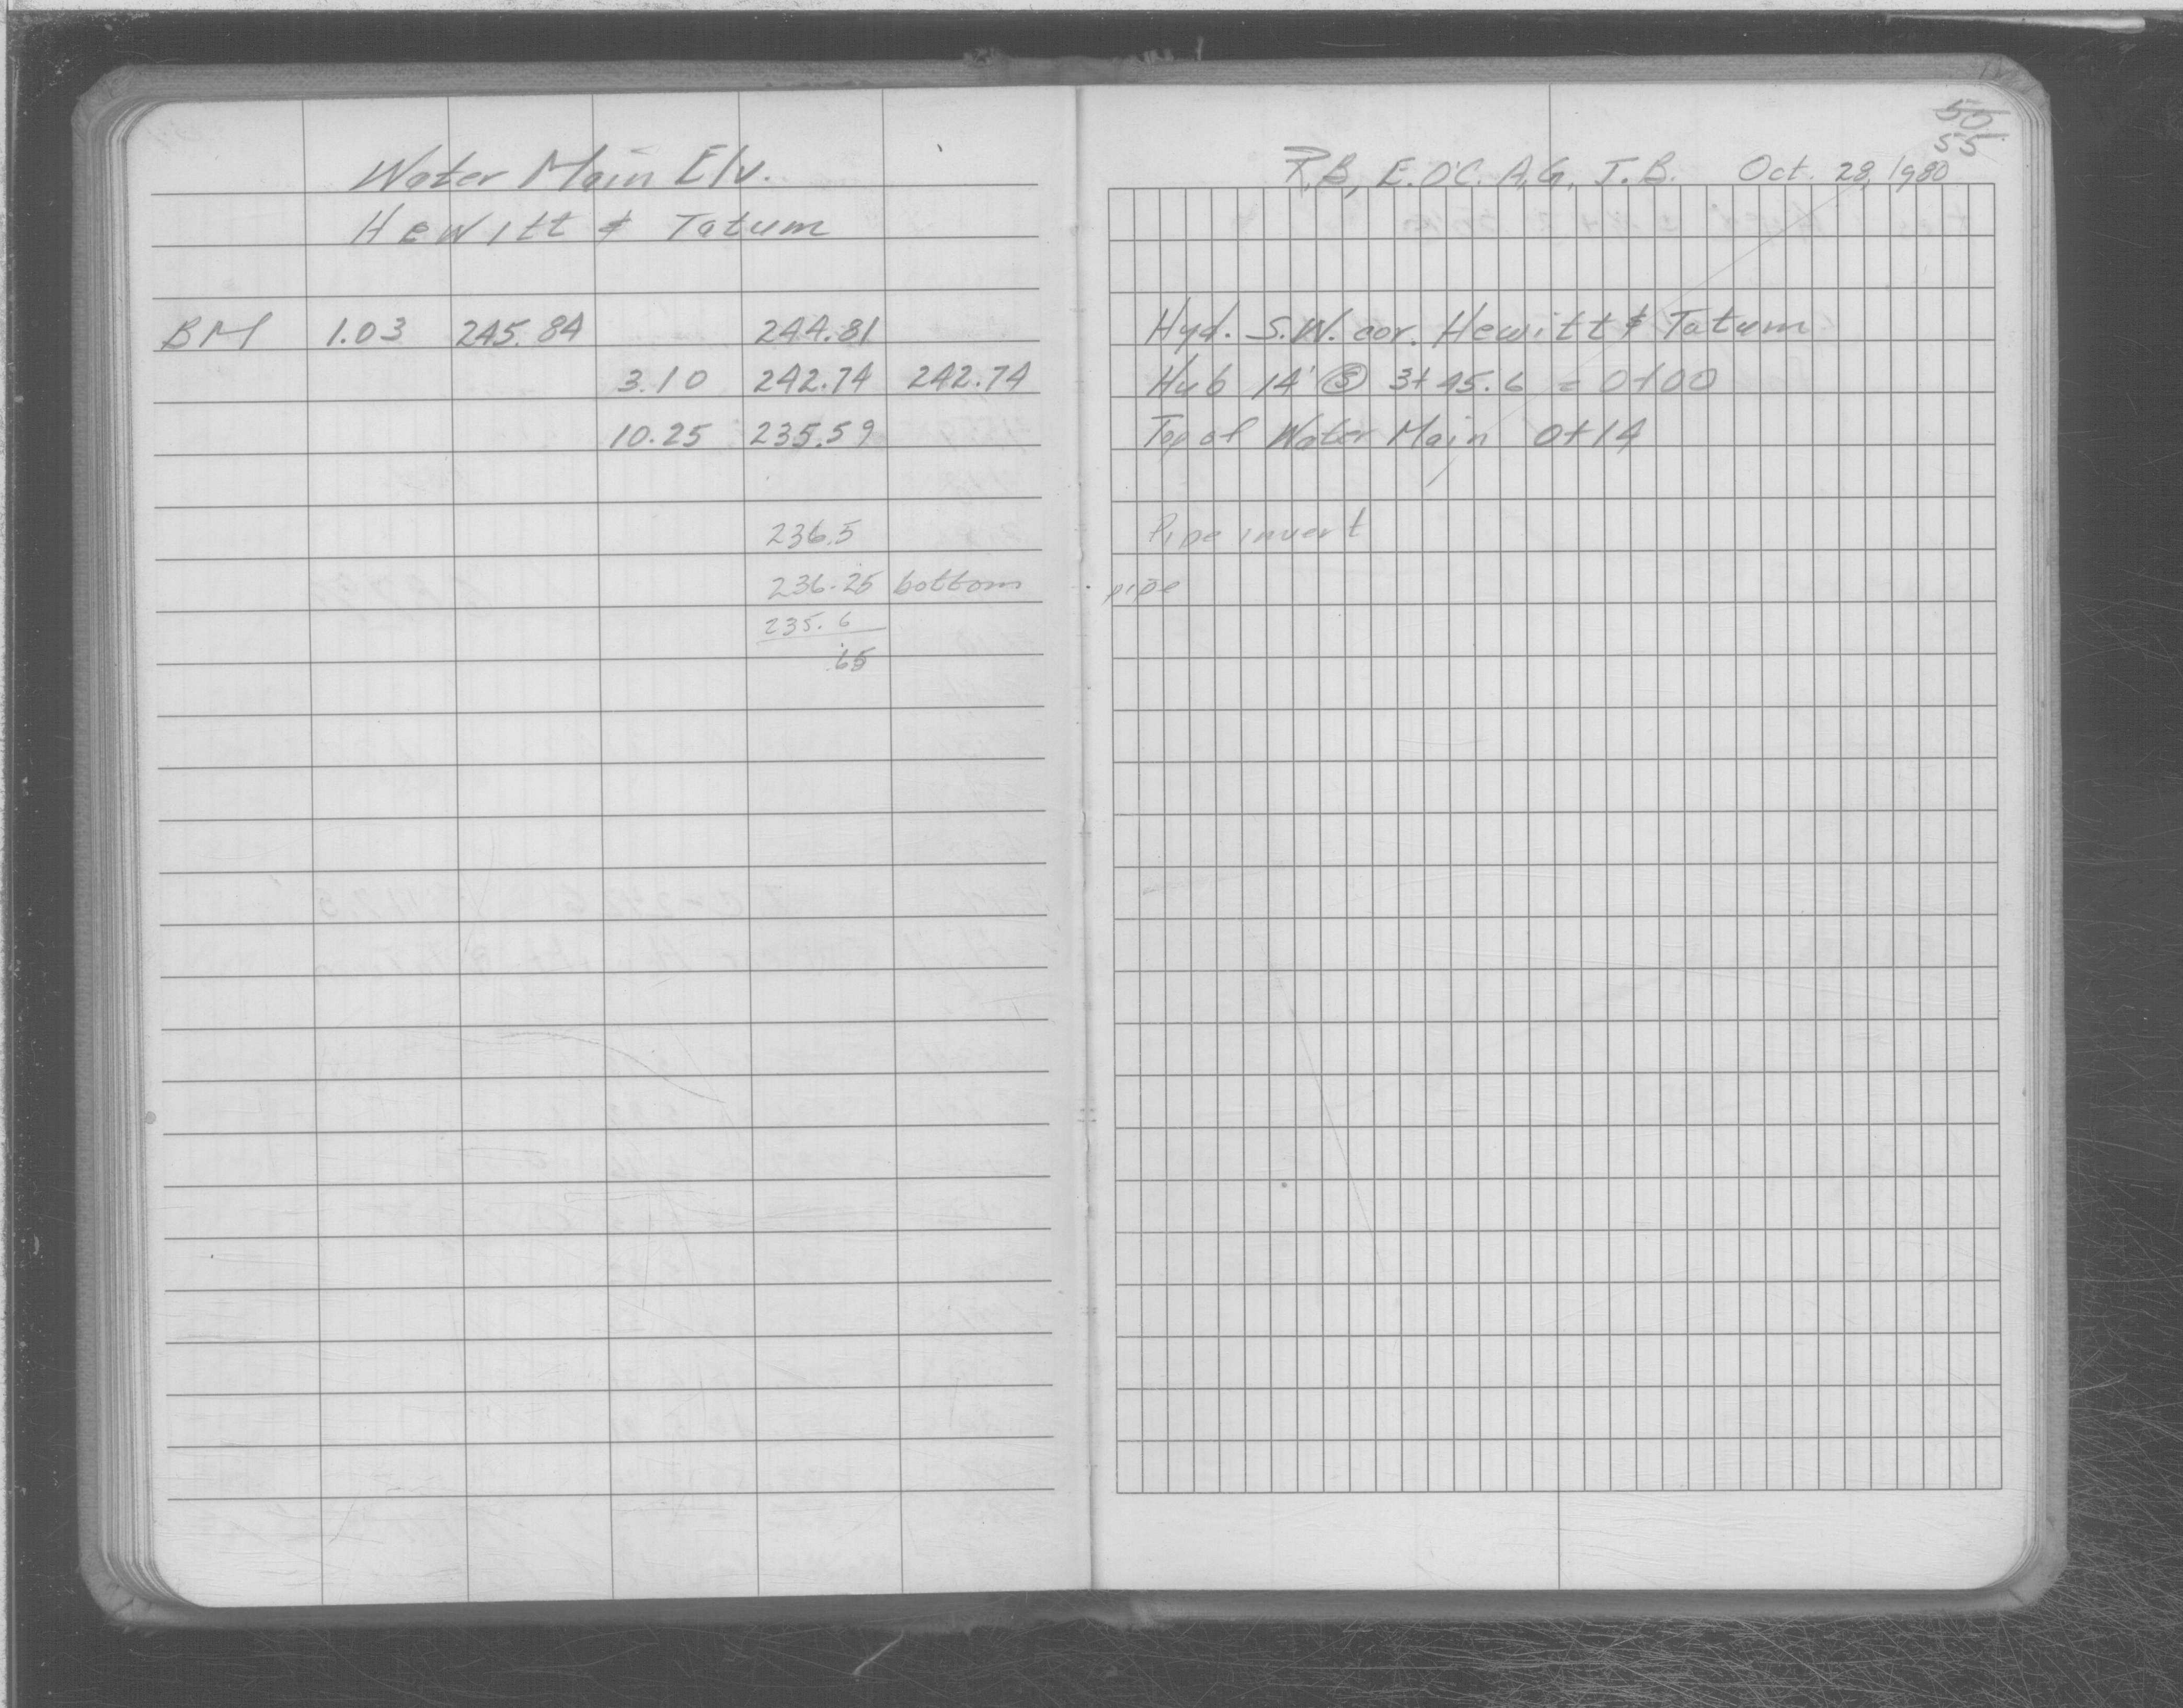 Water Main Elv.
Hewitt & Tatum
BM 1.03 245.84 244.81
3.10 242.74 242.74
10.25 235.59
236.5
236.25 bottom
235.6
.65
50
55
P.B, E.O'C. A.G, J.B. Oct. 28, 1980
Hyd. S.W. cor. Hewitt & Tatum
Hub 14' Ⓢ 3+95.6 = 0+00
Top of Water Main 0+14
Pipe invert
pipe